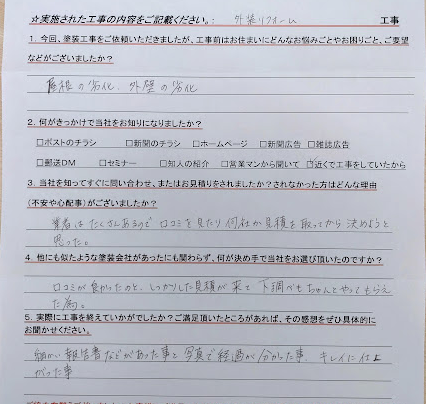 ☆実施された工事の内容をご記載ください。: 外装リフォーム 工事
1. 今回、塗装工事をご依頼いただきましたが、工事前はお住まいにどんなお悩みごとやお困りごと、ご要望
などがございましたか?
屋根の劣化、外壁の劣化
2. 何がきっかけで当社をお知りになりましたか?
□ポストのチラシ □新聞のチラシ □ホームページ □新聞広告 □雑誌広告
□郵送DM □セミナー □知人の紹介 □営業マンから聞いて ☑近くで工事をしていたから
3. 当社を知ってすぐに問い合わせ、またはお見積りをされましたか?されなかった方はどんな理由
(不安や心配事)がございましたか?
業者はたくさんあるので口コミを見たり何社か見積を取ってから決めようと
思った。
4. 他にも似たような塗装会社があったにも関わらず、何が決め手で当社をお選び頂いたのですか?
口コミが良かったのと、しっかりした見積が来て下調べもちゃんとやってもらえ
た為。
5. 実際に工事を終えていかがでしたか?ご満足頂いたところがあれば、その感想をぜひ具体的に
お聞かせください。
細かい報告書などがあった事と写真で経過が分かった事、キレイに仕上
がった事